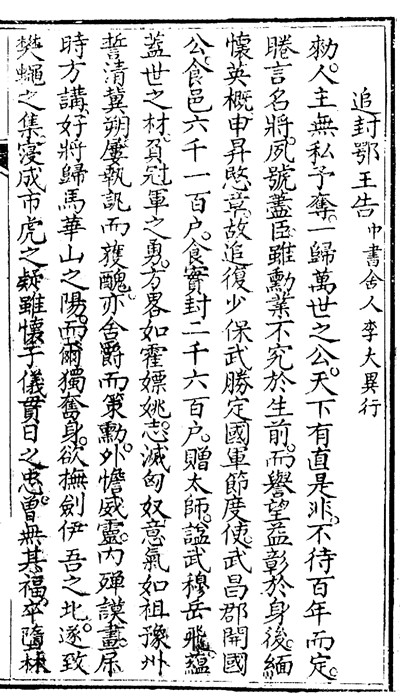 追封鄂王告 中書舍人李大異行
勑。人主無私予奪。一歸萬世之公。天下有直是非。不待百年而定。
睠言名將。夙號藎臣。雖勳業不究於生前。而譽望益彰於身後。緬
懷英概。申昇愍章。故追復少保武勝定國軍節度使。武昌郡開國
公。食邑六千一百户。食實封二千六百户。贈太師。謚武穆岳飛。蘊
蓋世之材。負冠軍之勇。方畧如霍嫖姚。志滅匈奴。意氣如祖豫州
誓清冀朔。屢執訊而獲醜。亦舍爵而策勳。外憺威靈。内殫謨畫。屬
時方講好。將歸馬華山之陽。而爾獨奮身。欲撫劍伊吾之北。遂致
樊蠅之集。寖成市虎之疑。雖懷子儀貫日之忠。曾無其福。卒隨林